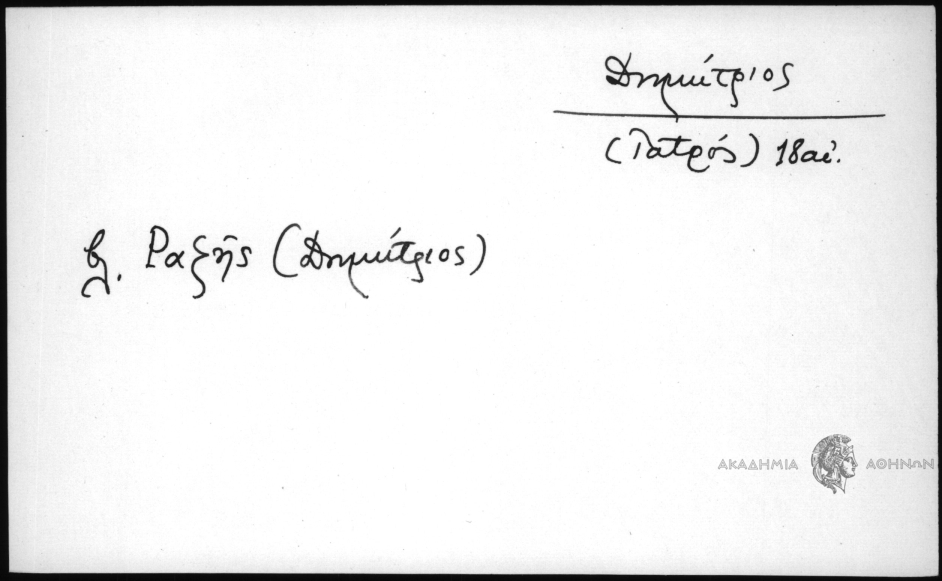 Δημήτριος
(Ἰατρός) 18 αἰ.
βλ. Ραζῆς (Δημήτριος)
ΑΚΑΔΗΜΙΑ ΑΘΗΝΩΝ